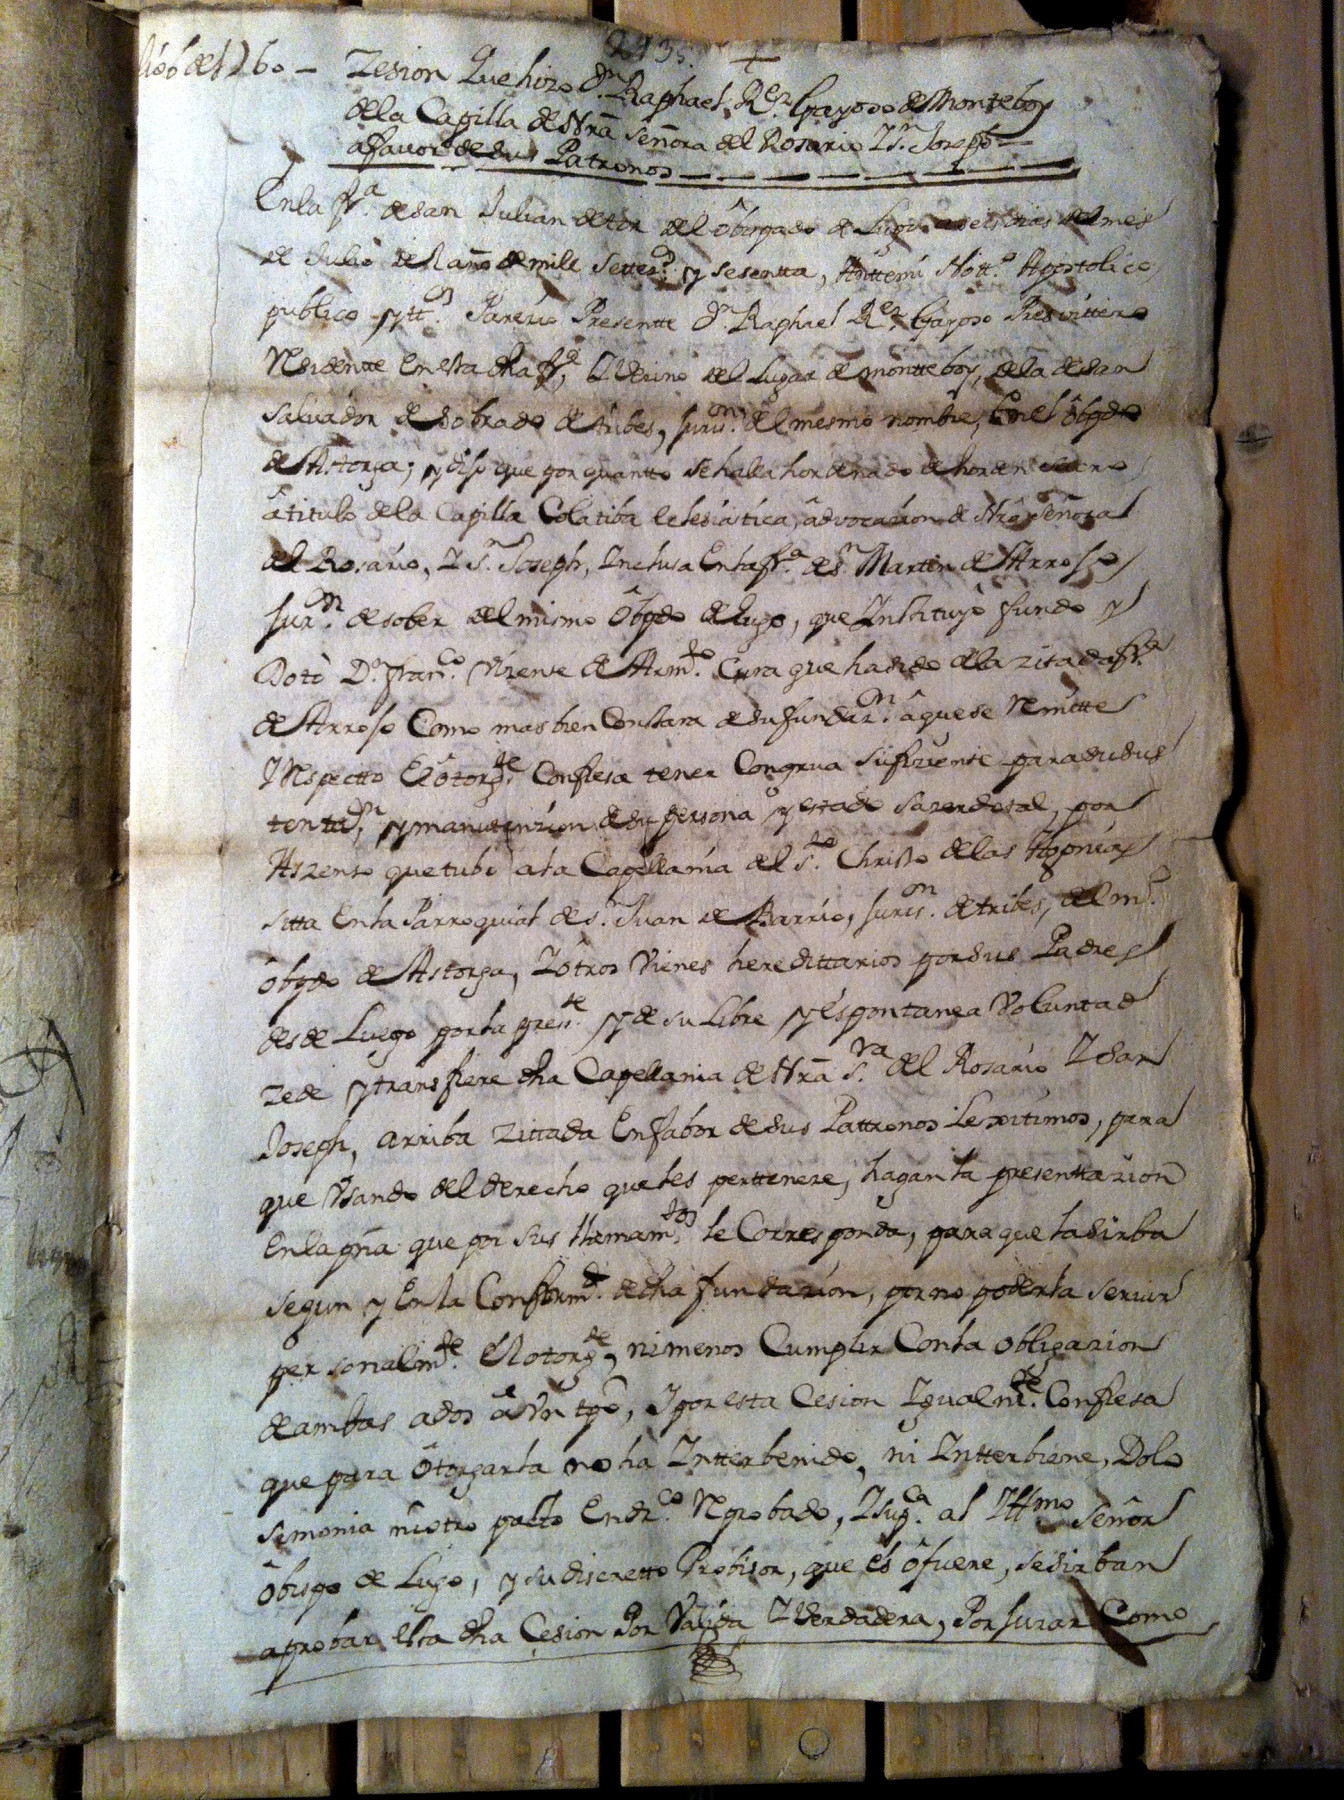 2435. +
de 1760 - Zesion Que hizo Dn. Raphael Rez. Gayoso de Monteboy
de la Capilla de Nrã Señora del Rosario Y Sn. Joseph
a fauor de sus Patronos
En la frª. de San Julian de tor del Obispado de Lugo a seis dias del mes
de Julio del año de mill settezos. y sesentta, Antte mi Nottº. Apostolico
publico y ttos. Parezio Presentte Dn. Raphael Rez. Gayoso Presvittero
Residentte En esta dha frª, Y Vezino del Lugar de montteboy, de la de San
Salvador de Sobrado de tribes, Jurison. del mesmo nombre, En el Obpdo
de Astorga; y dijo que por quantto se halla hordenado de horden sacro
â titulo de la Capilla Colatiba Eclesiástica, âdvocazion de Nrâ Señora
del Rosario, Y Sn. Joseph, Inclusa En la frª. de Sn. Martin de Arrojo
Juron. de sober del mismo Obpdo de Lugo, que Instituyô fundo y
Dotô Dn. franco. Vizente de Armto. Cura que ha sido de la zitada frª
de Arrojo Como mas bien Constara de su fundazon. â que se Remitte
Y Respectto El ôtorgte. Confiesa tener Congrua sufiziente para su sus
tentazn. y manutenzion de su persona y estado sazerdotal, por
Aszenso que tubo a la Capellania del Sto. Christo de las Agonias
sitta En la Parroquial de Sn. Juan de Barrio, Jurison. de tribes, del mº.
Obpdo de Astorga, Y ôtros Vienes heredittarios por sus Padres
desde Luego por la preste. y de su Libre y espontanea Voluntad
zede y transfiere dha Capellania de Nrã Sra. del Rosario Y San
Joseph, arriba zittada En fabor de sus Pattronos Lexitimos, para
que Vsando del derecho que les pertteneze, hagan la presenttazion
En la pña que por sus llamamtos. le Corresponda, para que la sirba
segun y En la Conformd. de dha fundazion, por no poderla seruir
personalmte. El otorgte, ni menos Cumplir Con la Obligazion
de ambas ados â Vn tpô, Y por esta Cesion Igualmte. Confiesa
que para ôtorgarla no ha Intterbenido, ni Intterbiene, Dolo
simonia ni otro pacto En drco. Reprobado, Y supca. al Illmo Señor
Obispo de Lugo, y su discretto Probisor, que és ô fuere, se sirban
aprobar esta dha Cesion Por Valida Y Verdadera, Por Jurar Como